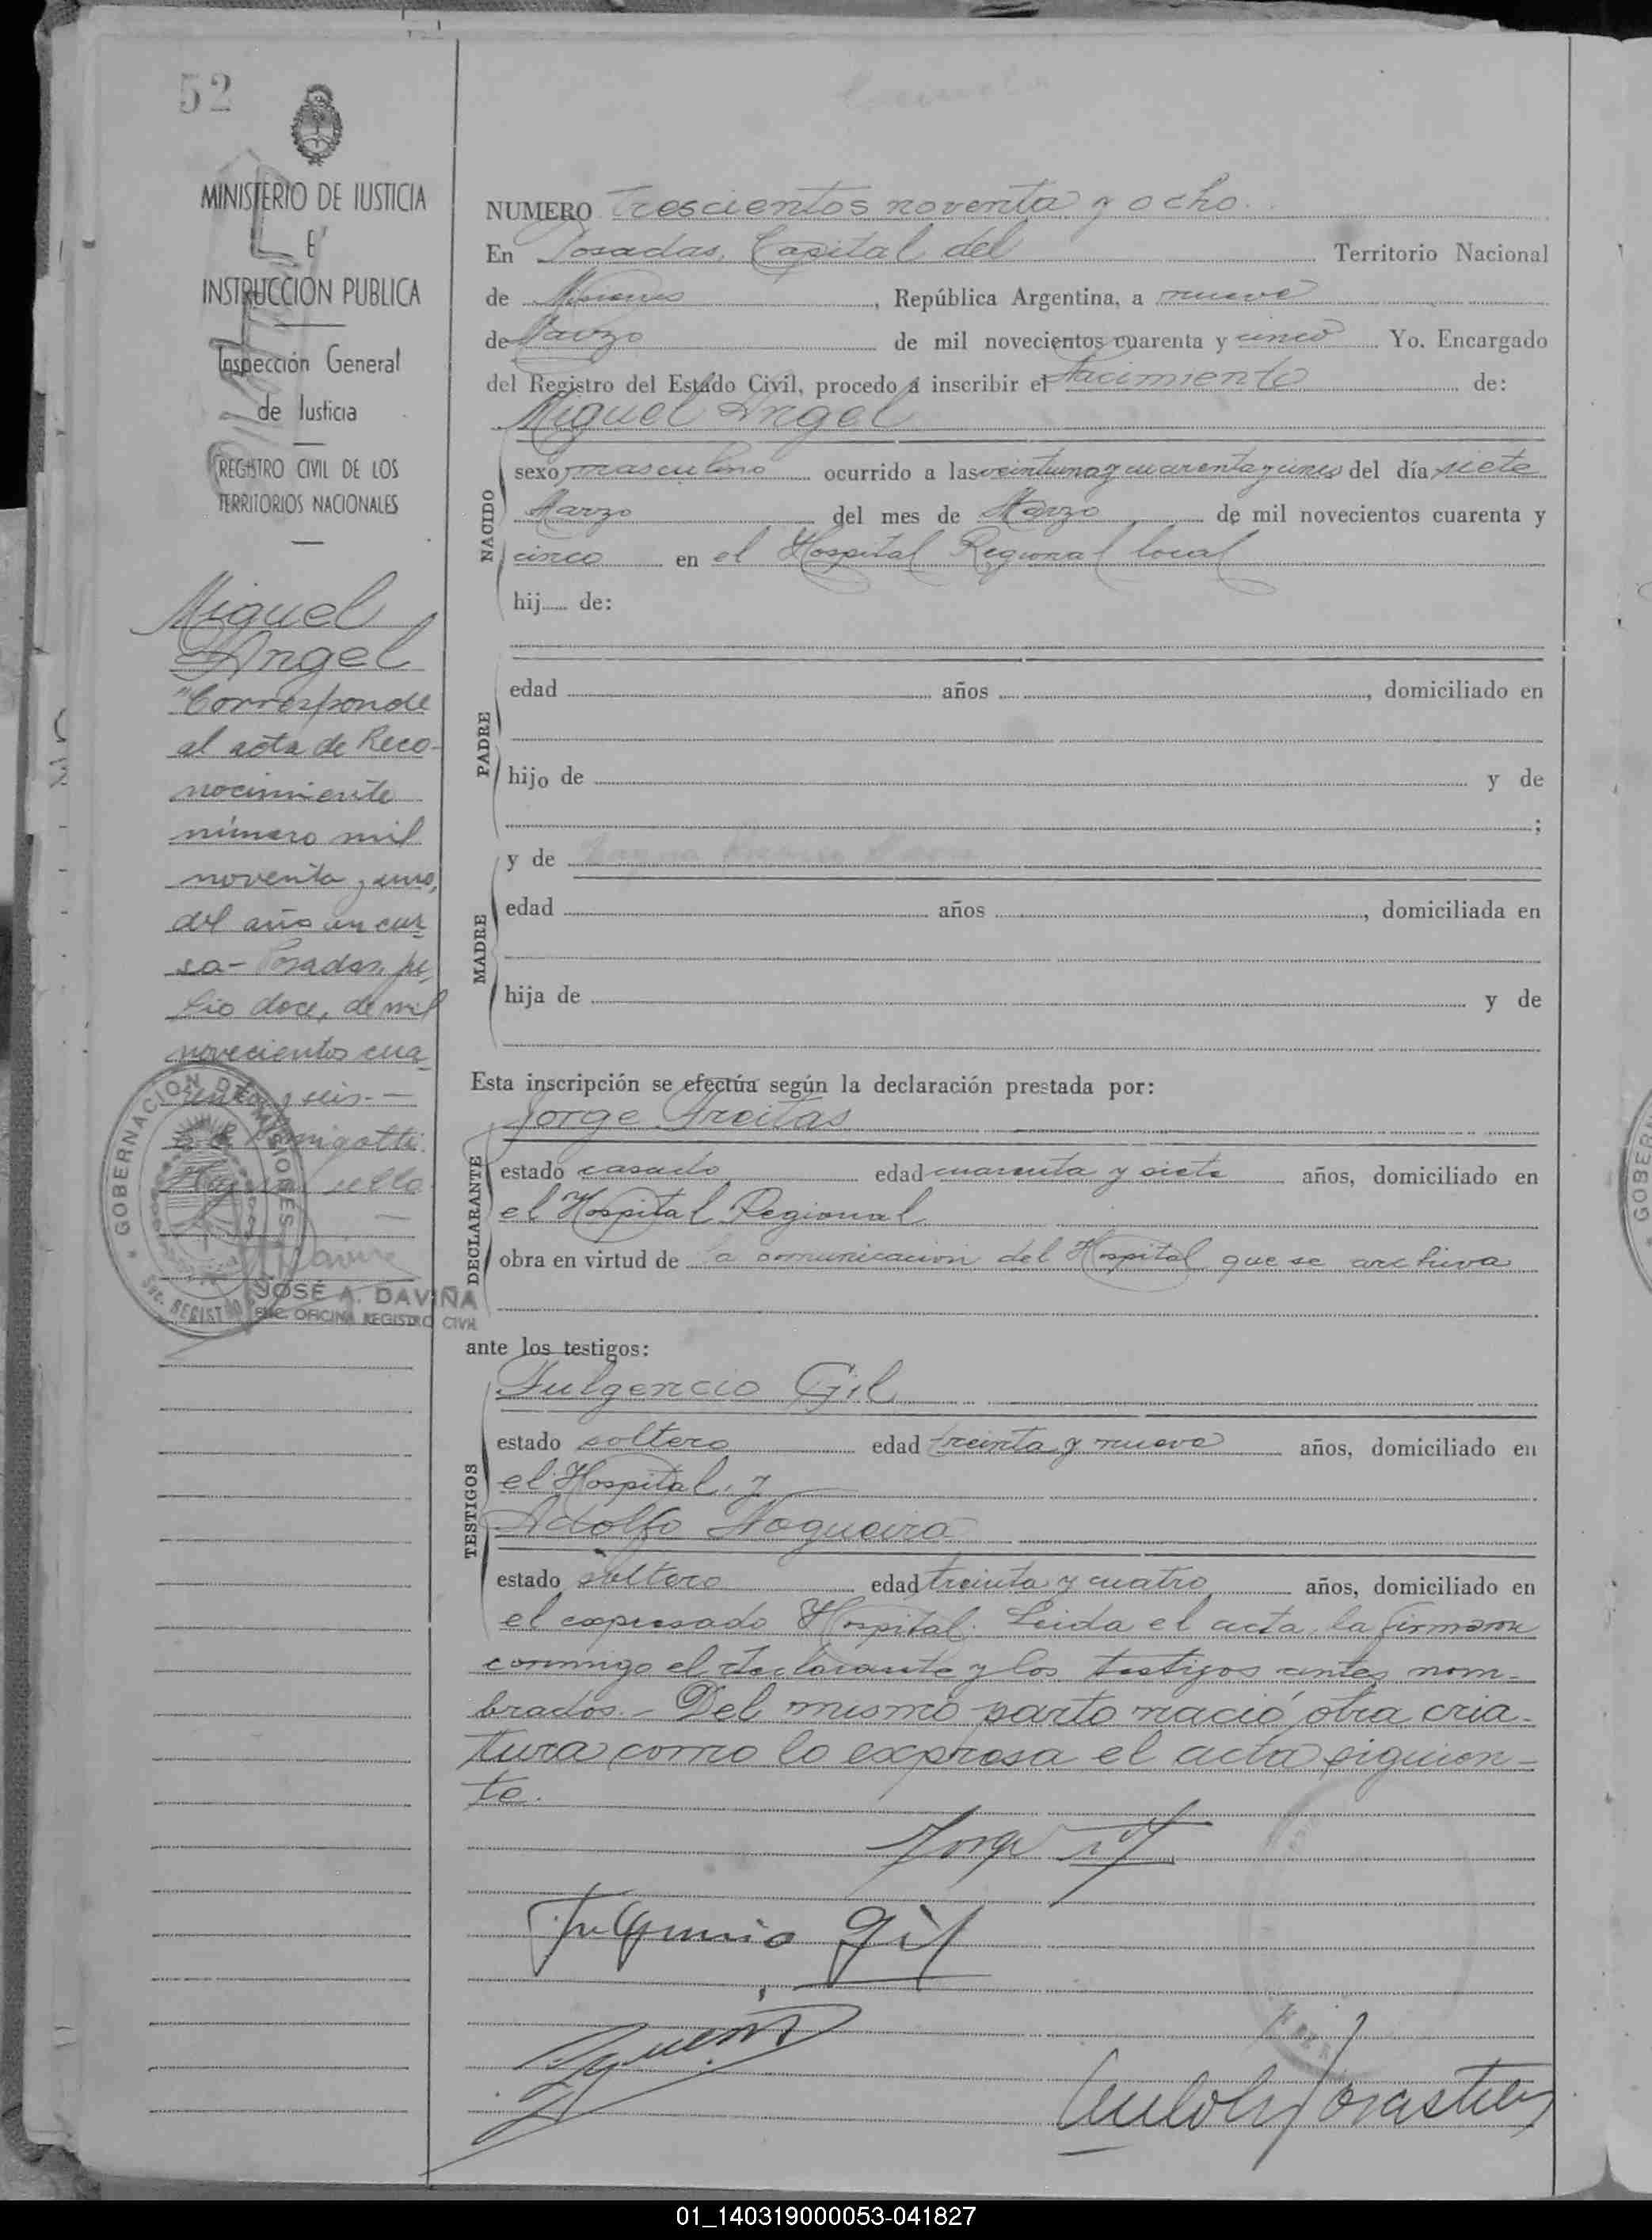 52
MINISTERIO DE JUSTICIA
E
INSTRUCCIÓN PUBLICA
Inspección General
de Justicia
REGISTRO CIVIL DE LOS
TERRITORIOS NACIONALES
Miguel
Angel
"Corresponde
al acta de Reco-
nocimiento
número mil
noventa y uno,
del año en cur
so- Posadas, ju
lio doce, de mil
novecientos cua
renta y seis.-
Hay un sello
GOBERNACION DE MISIONES
JOSÉ A. DAVIÑA
ENC. OFICINA REGISTRO CIVIL
NUMERO Trescientos noventa y ocho.
En Posadas, Capital del Territorio Nacional
de Misiones, República Argentina, a nueve
de Marzo de mil novecientos cuarenta y cinco Yo. Encargado
del Registro del Estado Civil, procedo a inscribir el Nacimiento de:
Miguel Angel
NACIDO
sexo masculino ocurrido a las veintiuna y cuarenta y cinco del día siete
Marzo del mes de Marzo de mil novecientos cuarenta y
cinco en el Hospital Regional local
hij..... de:
PADRE
edad años , domiciliado en
hijo de y de
;
y de
MADRE
edad años , domiciliada en
hija de y de
Esta inscripción se efectúa según la declaración prestada por:
Jorge Freitas
DECLARANTE
estado casado edad cuarenta y siete años, domiciliado en
el Hospital Regional
obra en virtud de la comunicacion del Hospital que se archiva
ante los testigos:
Fulgencio Gil
TESTIGOS
estado soltero edad treinta y nueve años, domiciliado en
el Hospital, y
Adolfo Nogueira
estado soltero edad treinta y cuatro años, domiciliado en
el expresado Hospital. Leida el acta, la firmaron
conmigo el declarante y los testigos antes nom-
brados.- Del mismo parto nació otra cria-
tura como lo expresa el acta siguien-
te.
Jorge
Fulgencio Gil
01_140319000053-041827